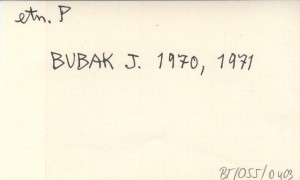 etn. P
BUBAK J. 1970, 1971
BJ/055/0403